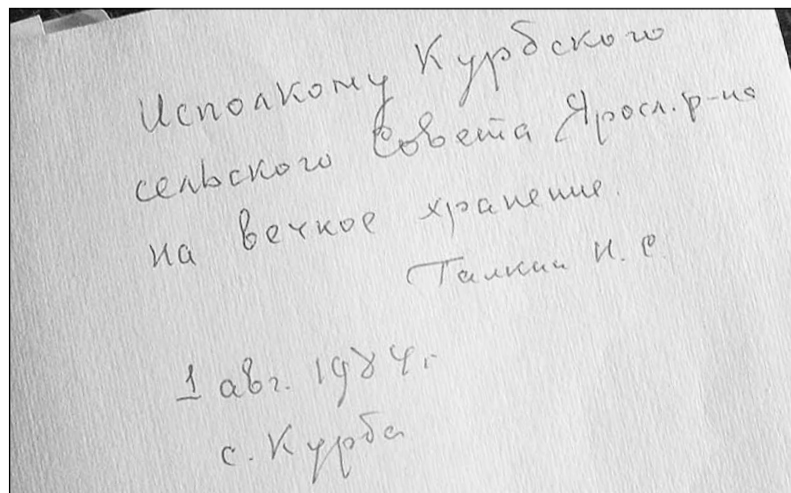 Исполкому Курбского
сельского Совета Яросл. р-на
на вечное хранение.
Талкин Н. С.
1 авг. 1984 г.
с. Курба